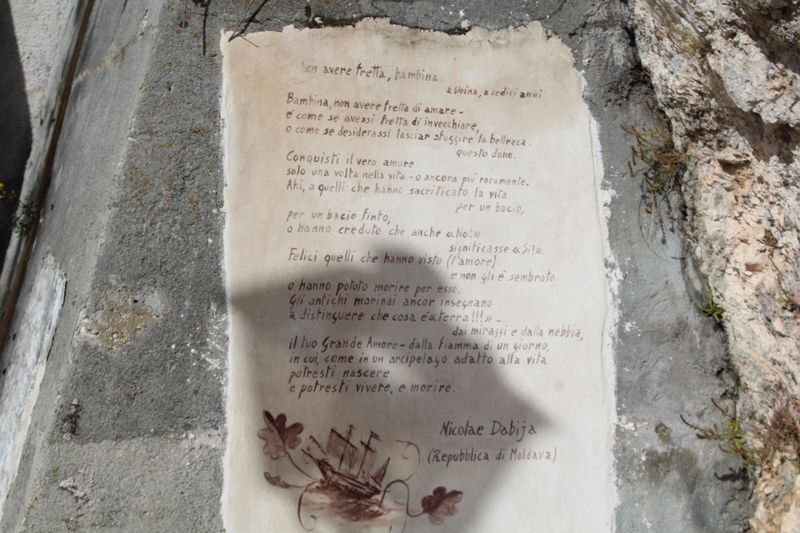 Non avere fretta, bambina
a Doina, a sedici anni
Bambina, non avere fretta di amare -
è come se avessi fretta di invecchiare,
o come se desiderassi lasciar sfuggire la bellezza.
questo dono.
Conquisti il vero amore
solo una volta nella vita - o ancora più raramente.
Ahi, a quelli che hanno sacrificato la vita
per un bacio,
per un bacio finto,
o hanno creduto che anche «No!»
significasse «Sì!».
Felici quelli che hanno visto (l'amore)
e non gli è sembrato
o hanno potuto morire per esso.
Gli antichi marinai ancor insegnano
a distinguere che cosa è «terra!!!» -
dai miraggi e dalla nebbia,
il tuo Grande Amore - dalla fiamma di un giorno,
in cui, come in un arcipelago adatto alla vita
potresti nascere
e potresti vivere, e morire.
Nicolae Dabija
(Repubblica di Moldava)